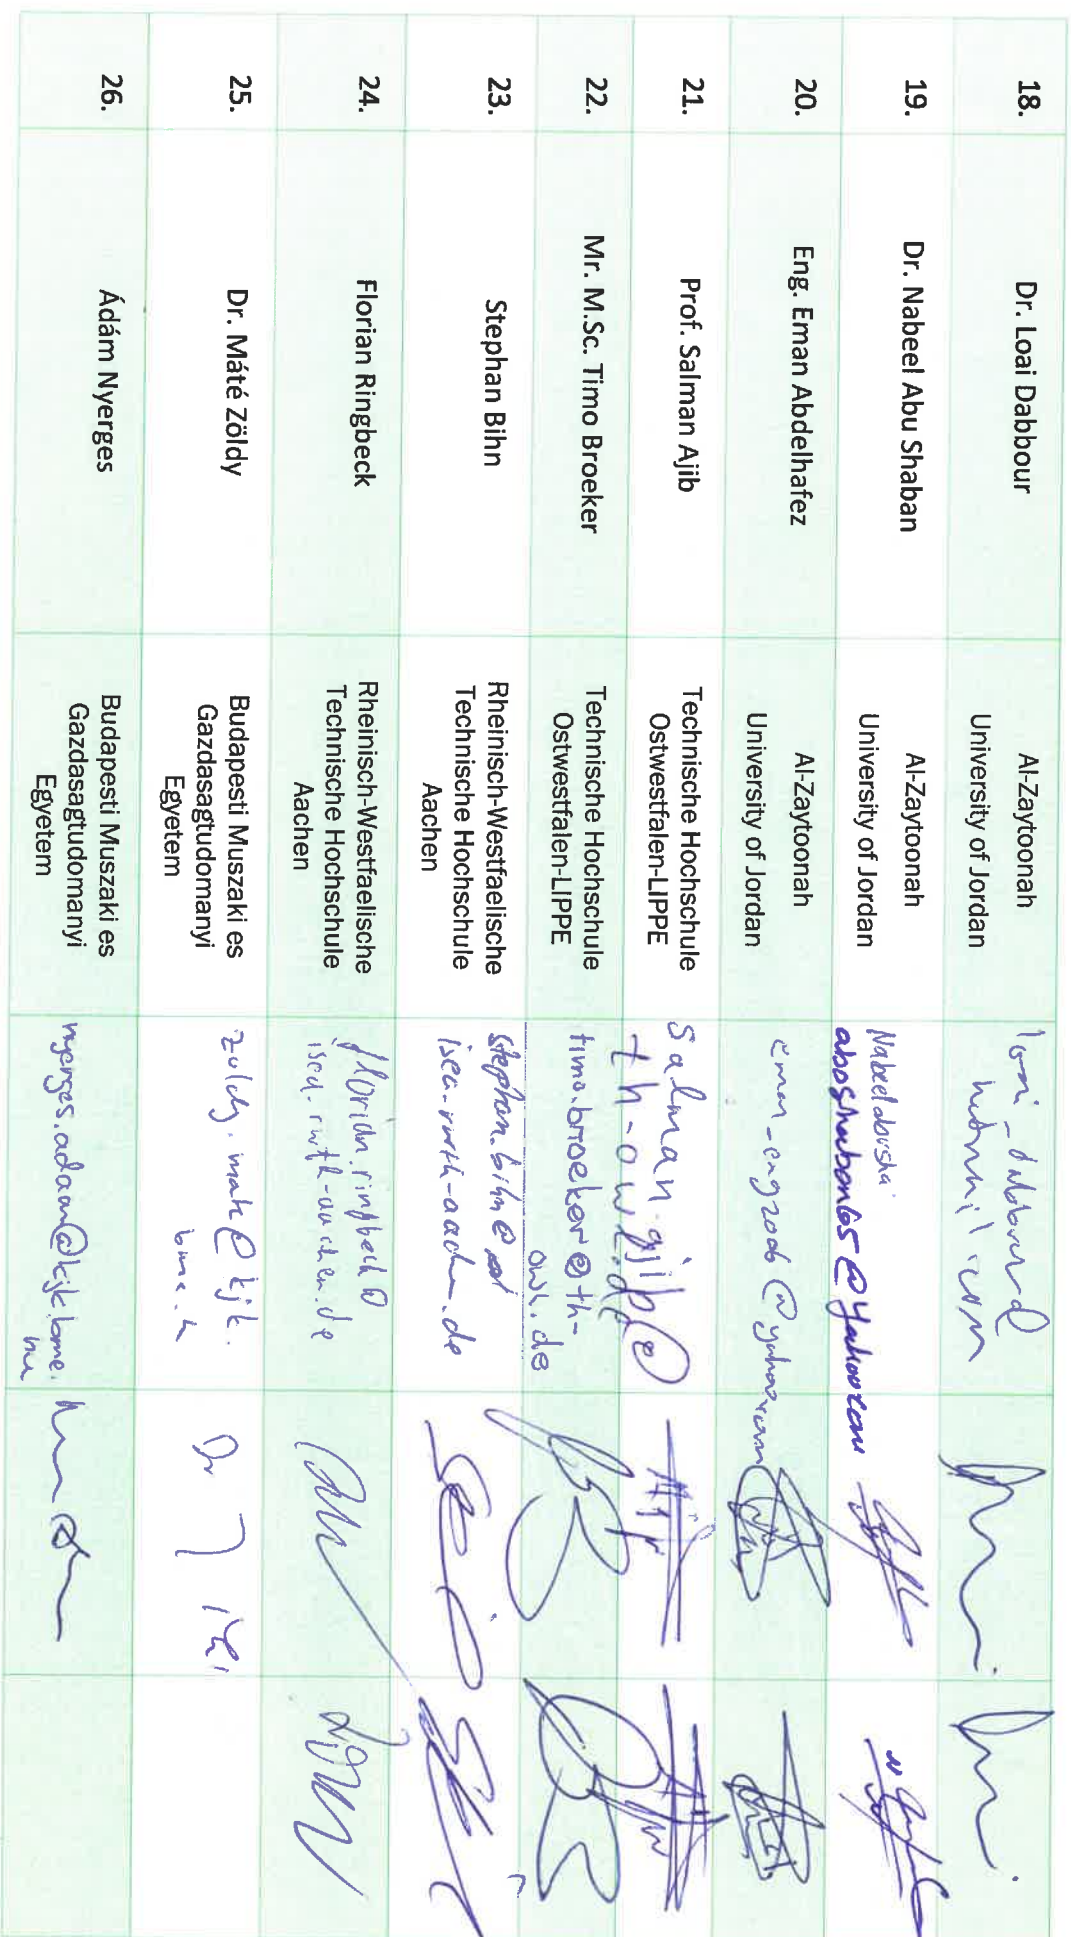 18.
Dr. Loai Dabbour
Al-Zaytoonah
University of Jordan
19.
Dr. Nabeel Abu Shaban
Al-Zaytoonah
University of Jordan
aboshaban65@yahoo.com
20.
Eng. Eman Abdelhafez
Al-Zaytoonah
University of Jordan
eman_eng2006@yahoo.com
21.
Prof. Salman Ajib
Technische Hochschule
Ostwestfalen-LIPPE
salman.ajib@
th-owl.de
22.
Mr. M.Sc. Timo Broeker
Technische Hochschule
Ostwestfalen-LIPPE
timo.broeker@th-
owl.de
23.
Stephan Bihn
Rheinisch-Westfaelische
Technische Hochschule
Aachen
stephan.bihn@
isea.rwth-aachen.de
24.
Florian Ringbeck
Rheinisch-Westfaelische
Technische Hochschule
Aachen
florian.ringbeck@
isea.rwth-aachen.de
25.
Dr. Máté Zöldy
Budapesti Muszaki es
Gazdasagtudomanyi
Egyetem
zoldy.mate@kjk.
26.
Ádám Nyerges
Budapesti Muszaki es
Gazdasagtudomanyi
Egyetem
nyerges.adam@kjk.bme.
hu